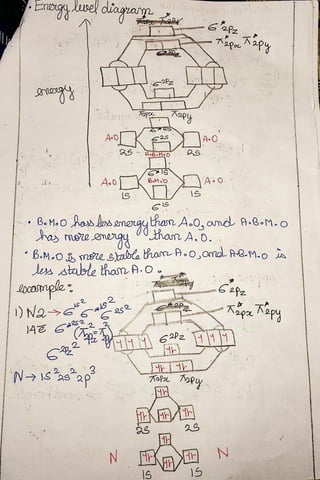 • Energy level diagram
σ*2pz
π*2px π*2py
energy
σ2pz
π2px π2py
σ*2s
A.O σ2s A.O
2S A.B.M.O 2S
σ*1s
A.O B.M.O A.O
1S σ1s 1S
• B.M.O has less energy than A.O, and A.B.M.O
has more energy than A.O.
• B.M.O is more stable than A.O, and A.B.M.O is
less stable than A.O.
example:
σ*2pz
1) N2 → σ1s² σ*1s² σ2s²
π*2px π*2py
14e σ*2s² (π2px² = π2py²)
σ2pz
σ2pz²
π2px π2py
N → 1S² 2S² 2P³
2S 2S
N N
1S 1S